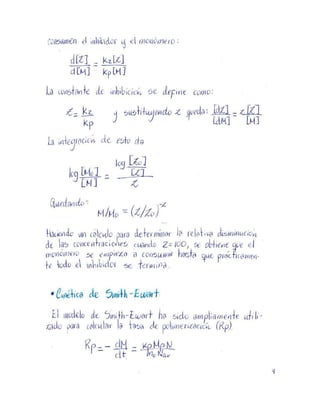 consumen el inhibidor y el monómero:
d[Z] = kz[Z]
d[M] kp[M]
La constante de inhibición se define como:
z = kz y sustituyendo z queda: [dZ] = z[Z]
kp [dM] [M]
La integración de esto da
log [Mo] = log [Zo]
[M] [Z]
z
Quedando:
M/Mo = (Z/Zo)^z
Haciendo un cálculo para determinar la relativa disminución
de las concentraciones cuando Z=100, se obtiene que el
monómero se empieza a consumir hasta que prácticamen-
te todo el inhibidor se termina.
• Cinética de Smith-Ewart
El modelo de Smith-Ewart ha sido ampliamente utili-
zado para calcular la tasa de polimerización (Rp).
Rp = - dM = kp Mp N
dt